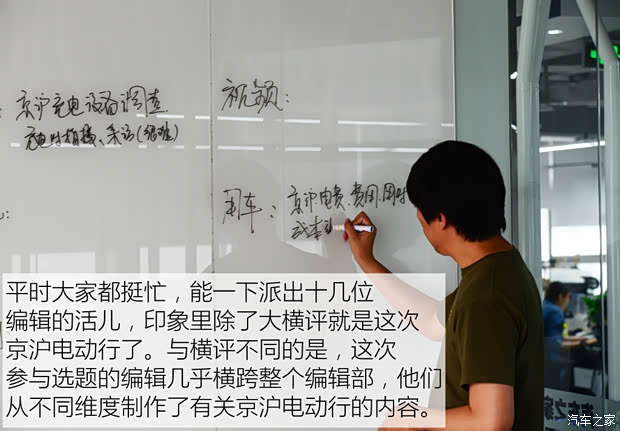 京沪充电设备调查
视频：
用车：京沪电费、费用、用时
成本
平时大家都挺忙，能一下派出十几位
编辑的活儿，印象里除了大横评就是这次
京沪电动行了。与横评不同的是，这次
参与选题的编辑几乎横跨整个编辑部，他们
从不同维度制作了有关京沪电动行的内容。
汽车之家